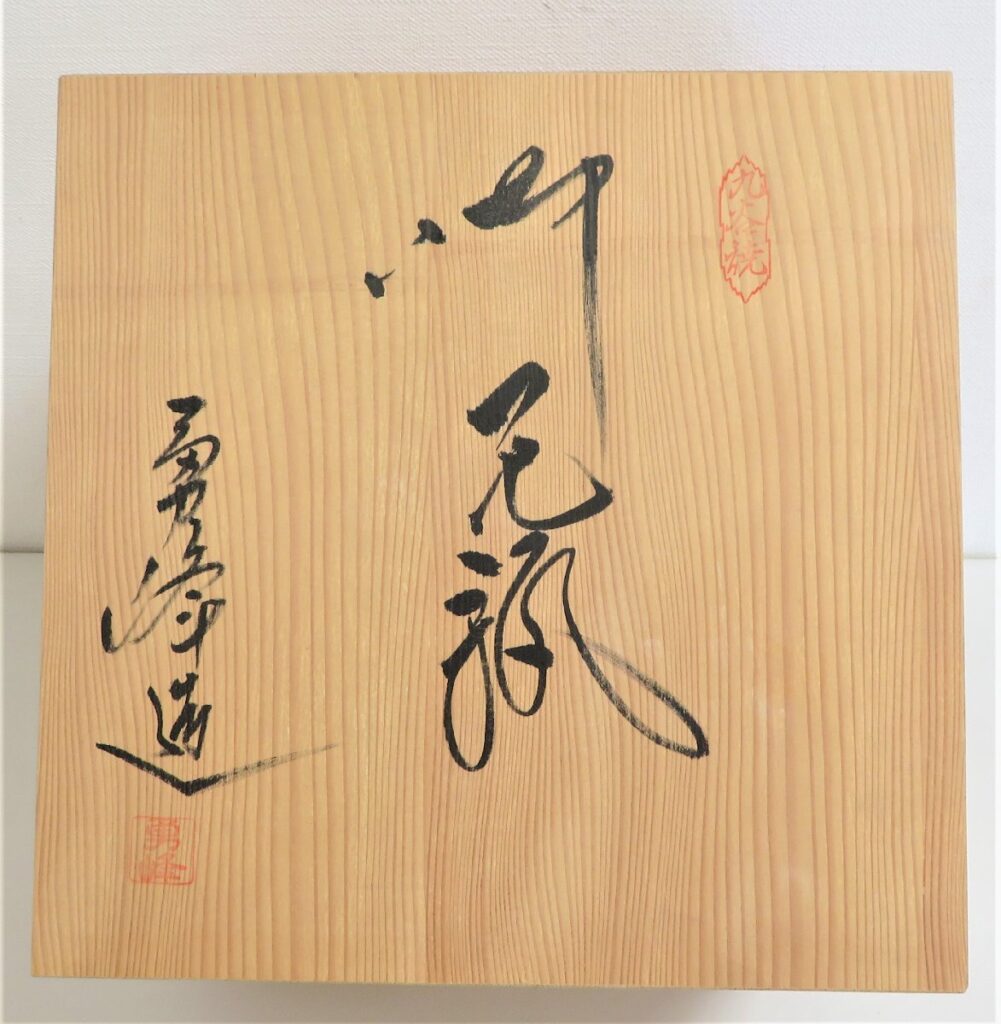 九谷焼
御花瓶
勇峰造
勇峰